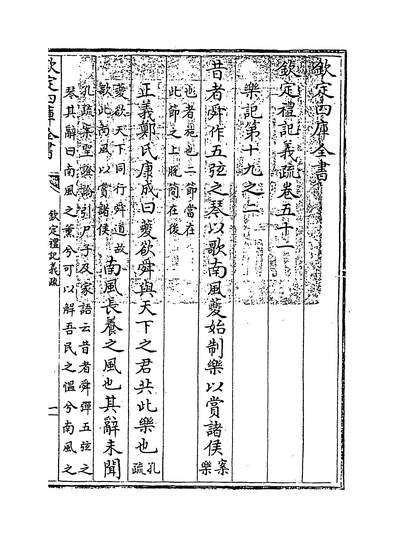 欽定四庫全書
欽定禮記義疏卷五十一
樂記第十九之二
昔者舜作五弦之琴以歌南風夔始制樂以賞諸侯
案樂
也者施也二節當在
此節之上脫簡在後
正義鄭氏康成曰夔欲舜與天下之君共此樂也
孔疏
夔欲天下同行舜道故
歌此南風以賞諸侯
南風長養之風也其辭未聞
孔疏案聖證論引尸子及家語云昔者舜彈五弦之
琴其辭曰南風之薰兮可以解吾民之慍兮南風之
欽定四庫全書
欽定禮記義疏
一